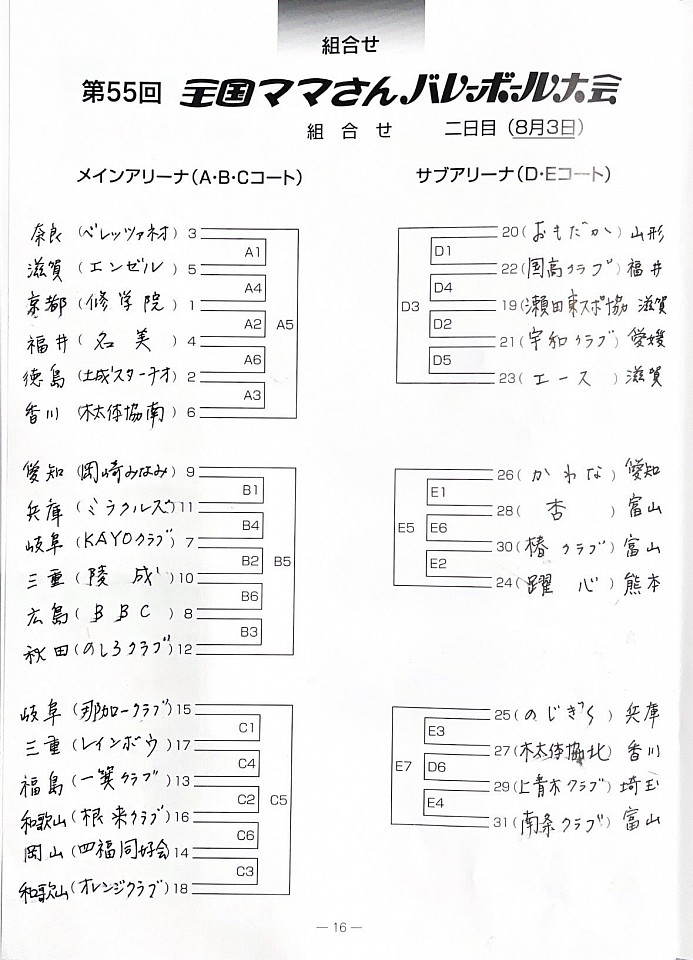 組合せ
第55回 全国ママさんバレーボール大会
組合せ 二日目(8月3日)
メインアリーナ(A・B・Cコート)
奈良(ベレッツァネオ)3
A1
滋賀(エンゼル)5
A4
京都(修学院)1
A2 A5
福井(名美)4
A6
徳島(土成スターチオ)2
A3
香川(木太体協南)6
愛知(岡崎みなみ)9
B1
兵庫(ミラクルズ)11
B4
岐阜(KAYOクラブ)7
B2 B5
三重(陵成)10
B6
広島(BBC)8
B3
秋田(のしろクラブ)12
岐阜(那加一クラブ)15
C1
三重(レインボウ)17
C4
福島(一箕クラブ)13
C2 C5
和歌山(根来クラブ)16
C6
岡山(四福同好会)14
C3
和歌山(オレンジクラブ)18
サブアリーナ(D・Eコート)
20(おもだか)山形
D1
22(国高クラブ)福井
D4
19(瀬田東スポ協)滋賀
D3 D2
21(宇和クラブ)愛媛
D5
23(エース)滋賀
26(かわな)愛知
E1
28(杏)富山
E5 E6
30(椿クラブ)富山
E2
24(躍心)熊本
25(のじぎく)兵庫
E3
27(木太体協北)香川
E7 D6
29(上青木クラブ)埼玉
E4
31(南条クラブ)富山
— 16 —